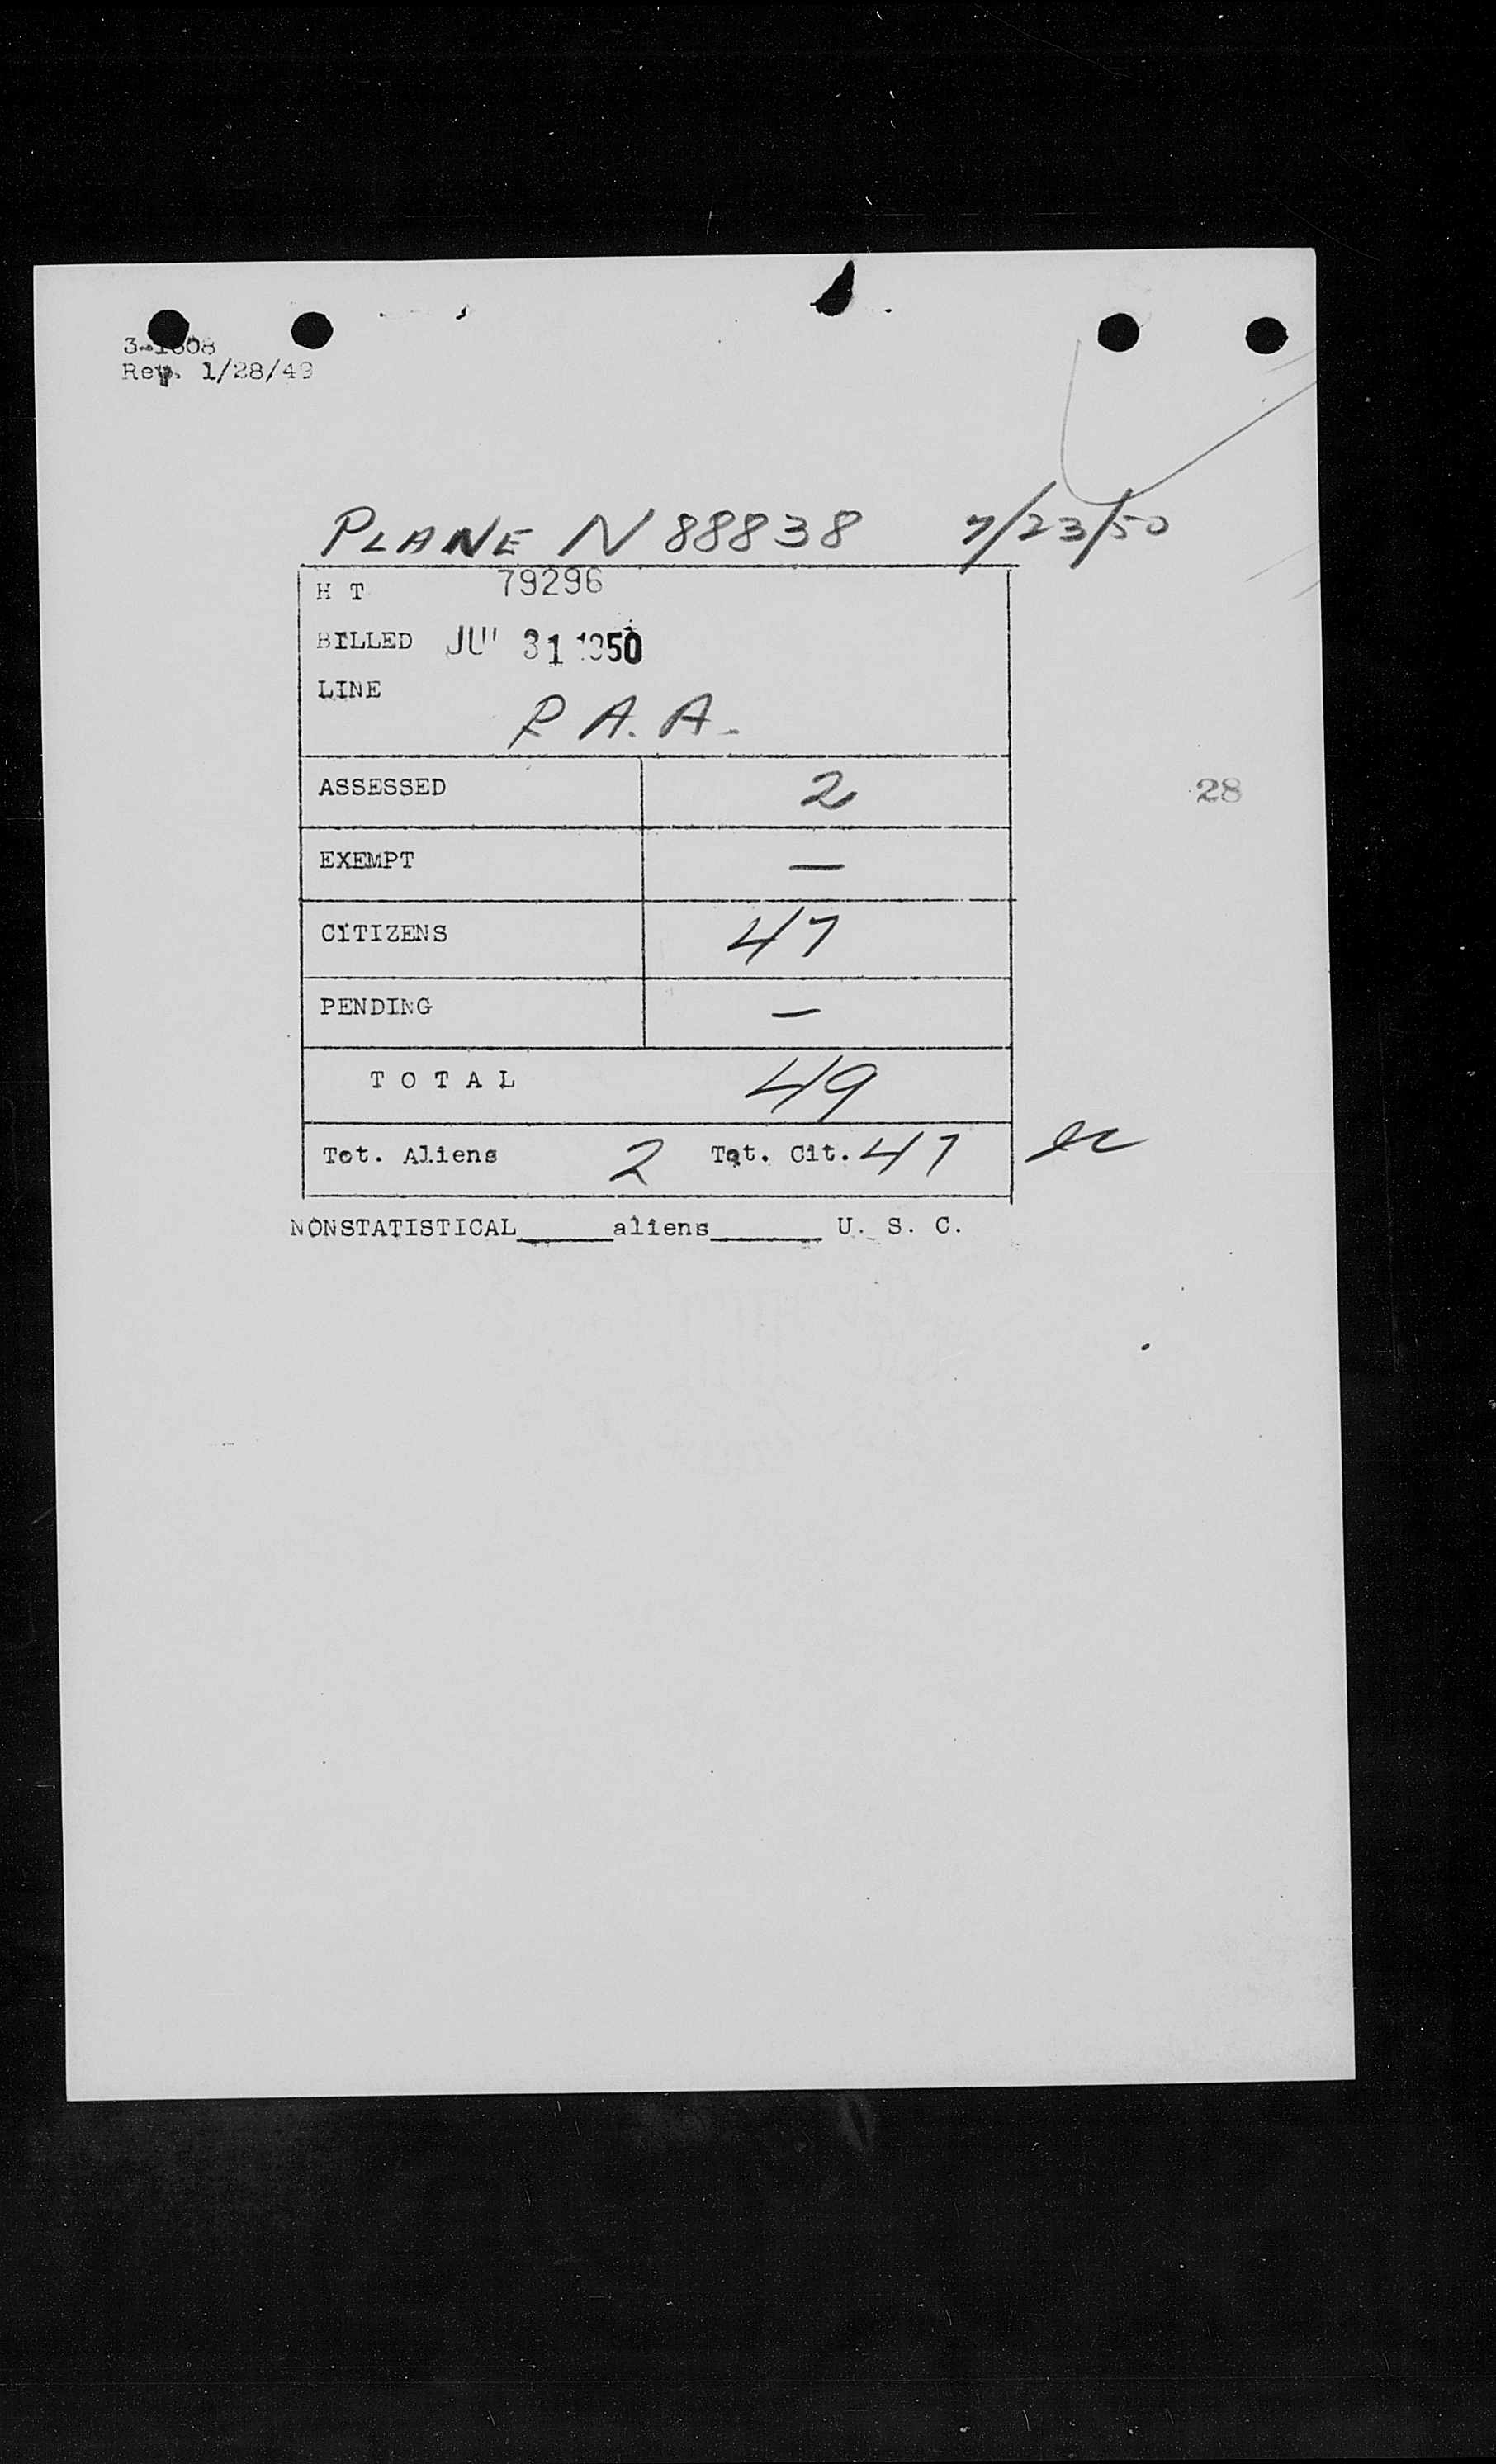 Rev. 1/28/49
PLANE N 88838 7/23/50
H T 79296
BILLED 31 1950
LINE
P A. A.
ASSESSED 2
28
EXEMPT —
CITIZENS 47
PENDING —
TOTAL 49
Tot. Aliens 2 Tot. Cit. 47
NONSTATISTICAL______aliens_______ U. S. C.